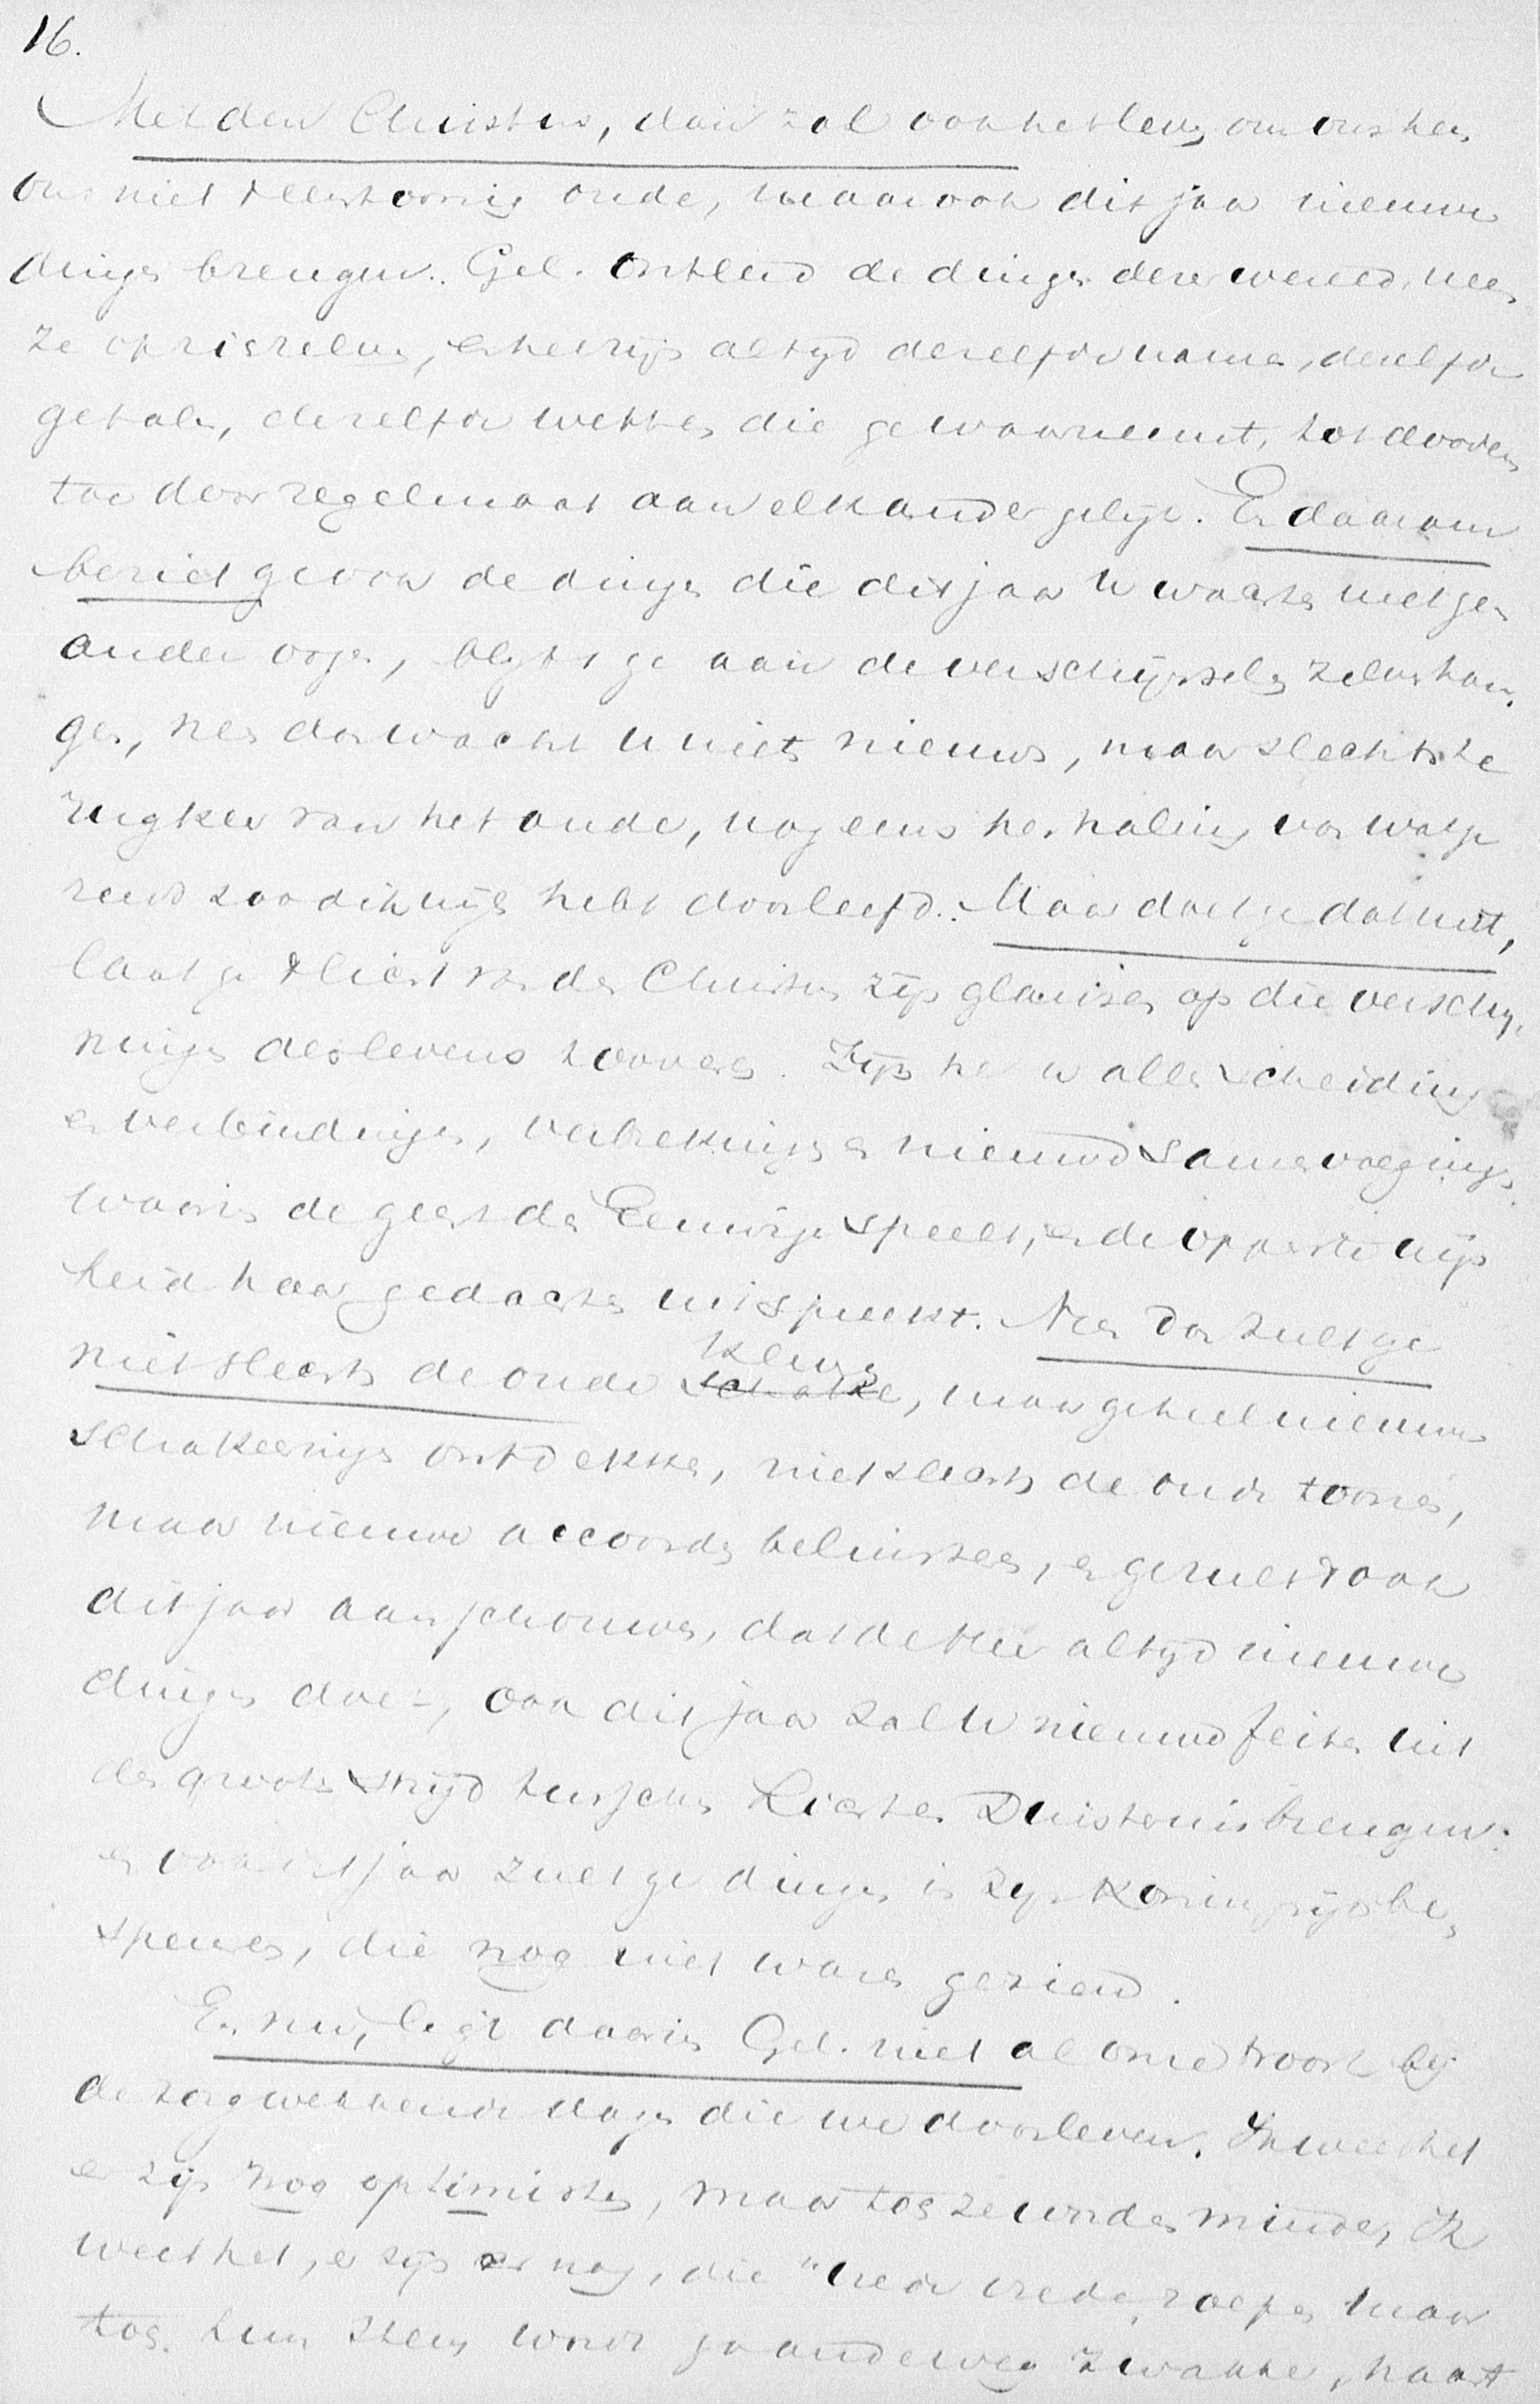 16.
Met den Christus, dan zal ook het leven om ons heen
ons niet slechts oude, maar ook dit jaar nieuwe
dingen brengen. Gel. ontleed de dingen dezer wereld, neem
ze op zichzelven, en het zijn altijd dezelfde namen, dezelfde
getalen, dezelfde wetten die ge waarneemt, tot doovens
toe door regelmaat aan elkander gelijk. En daarom
beziet ge ook de dingen die dit jaar U wachten met geen
ander oogen, blijft ge aan de verschijnselen zelven han-
gen, neen dan wacht U niets nieuws, maar slechts de
terugkeer van het oude, nog eens herhaling van wat ge
reeds zoo dikwijls hebt doorleefd. Maar doet ge dat niet,
laat ge 't licht van den Christus zijn glansen op die verschij-
ningen des levens tooveren. Zijn het U alle scheidingen
en verbindingen, verbrekingen en nieuwe samenvoegingen
waarin de geest des Eeuwigen speelt, en de opperste wijs
heid haar gedachten uitspreekt. Neen dan zult ge
niet slechts de oude kleuren, maar geheel nieuwe
schakeeringen ontdekken, niet slechts de oude toonen,
maar nieuwe accoorden beluisteren, en ge zult 't ook
dit jaar aanschouwen, dat de Heer altijd nieuwe
dingen doet, ook dit jaar zal U nieuwe feiten uit
den grooten strijd tusschen Licht en Duisternis brengen.
en ook dit jaar zult ge dingen in zijn Koninkrijk be-
speuren, die nog niet waren gezien.
En nu, ligt daarin Gel. niet al onze troost bij
de zorgwekkende dagen die we doorleven. Ik weet het
er zijn nog optimisten, maar toch ze worden minder, Ik
weet het, er zijn er nog, die "vrede vrede" roepen maar
toch hun stem wordt gaandeweg zwakker, haast